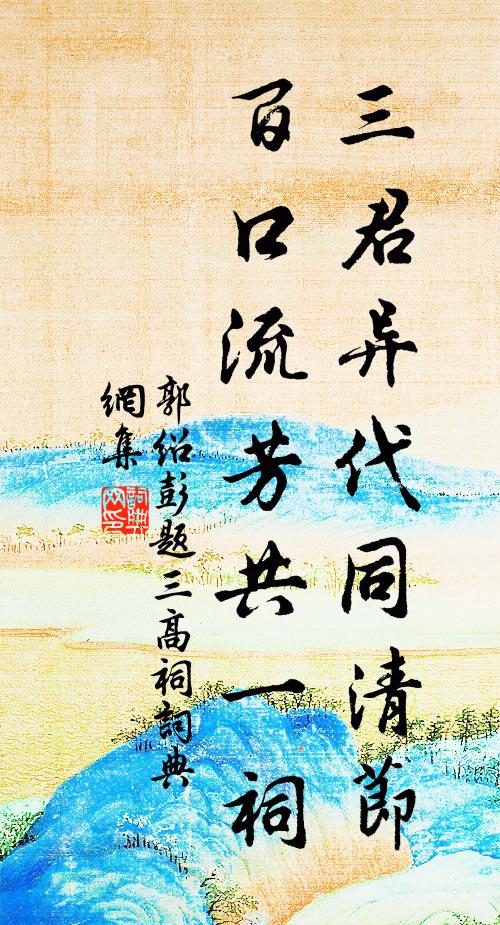 三君异代同清節
百口流芳共一祠
郭紹彭題三高祠詞典
網集
詞典網印